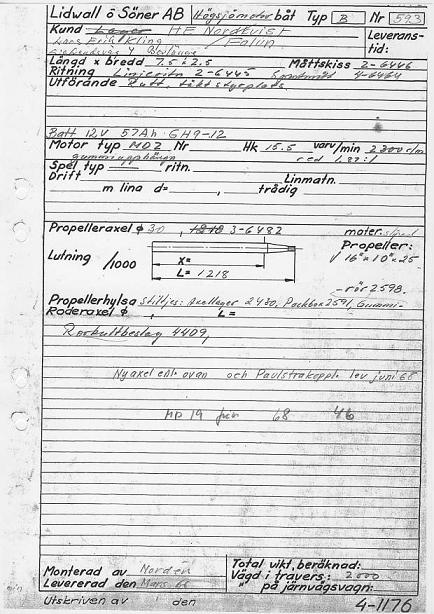 Lidwall ö Söner AB Högsjömotorbåt Typ B Nr 593
Kund HF Nordkvist Leverans-
Lars Erik Kling / Falun tid:
Borlänge
Längd x bredd 7.5 x 2.5 Måttskiss 2-6446
Ritning Linieritn 2-6445 4-6464
Utförande Ruff, täkt styrplats
Batt 12V 57Ah 6H9-12
Motor typ MD2 Nr Hk 15.5 varv/min 2300 r/m
gummiupphängn red 1,87:1
Spel typ ritn.
Drift Linmatn.
m lina d= , trådig
Propelleraxel ϕ 30 , 1218 3-6482 mater.
Propeller:
Lutning /1000 x= √ 16" x 10" x 25
L= 1218
- rör 2598.
Propellerhylsa Stiltjes: Axellager 2430, Packbox 2591, Gummi-
Roderaxel ϕ , L=
Rorkultbeslag 4409,
Ny axel enl. ovan och Paulstrakoppl. lev juni 68
MD 19 jun 68 46
Monterad av Nordén
Levererad den Mars 66
Total vikt, beräknad:
Vägd i travers: 2000
" på järnvägsvagn:
Utskriven av den
4-1176